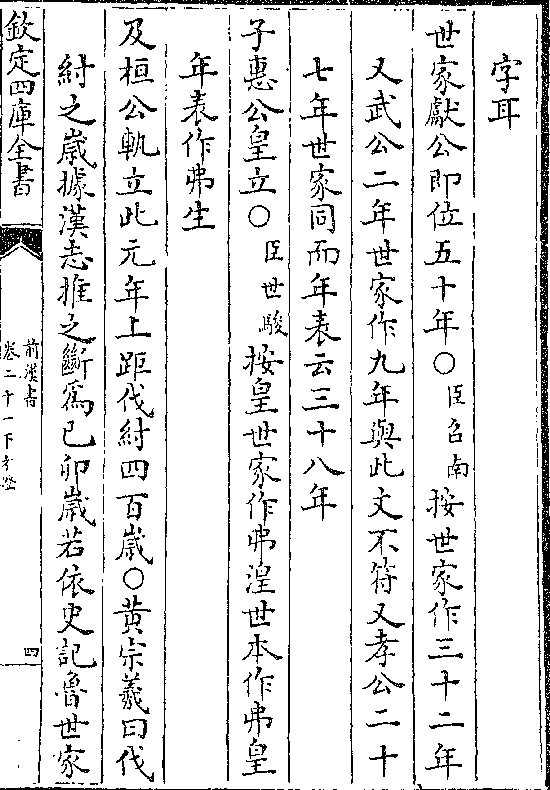 字耳
世家獻公即位五十年○臣召南按世家作三十二年
又武公二年世家作九年與此文不符又孝公二十
七年世家同而年表云三十八年
子惠公皇立○臣世駿按皇世家作弗湟世本作弗皇
年表作弗生
及桓公軌立此元年上距伐紂四百歲○黃宗羲曰伐
紂之歲據漢志推之斷為己卯歲若依史記魯世家
欽定四庫全書
前漢書
卷二十一下考證
四